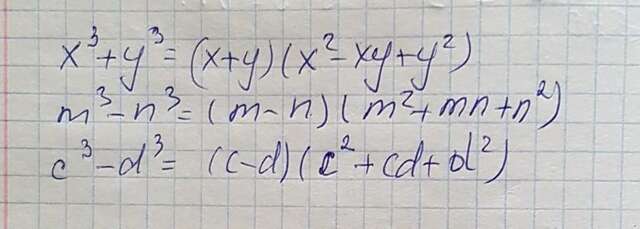 x³+y³=(x+y)(x²-xy+y²)
m³-n³=(m-n)(m²+mn+n²)
c³-d³=(c-d)(c²+cd+d²)